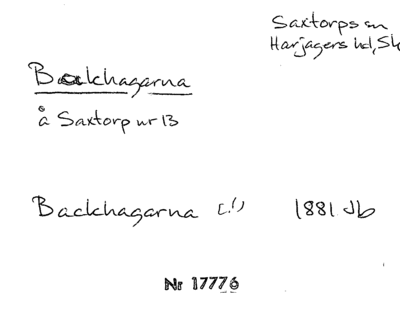 Saxtorps sn
Harjagers hd, Sk
Backhagarna
å Saxtorp nr 13
Backhagarna (!) 1881 Jb
Nr 17776